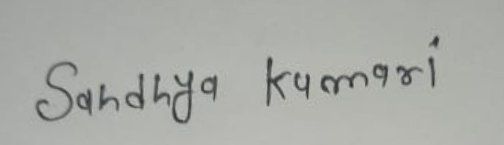 Sandhya Kumari